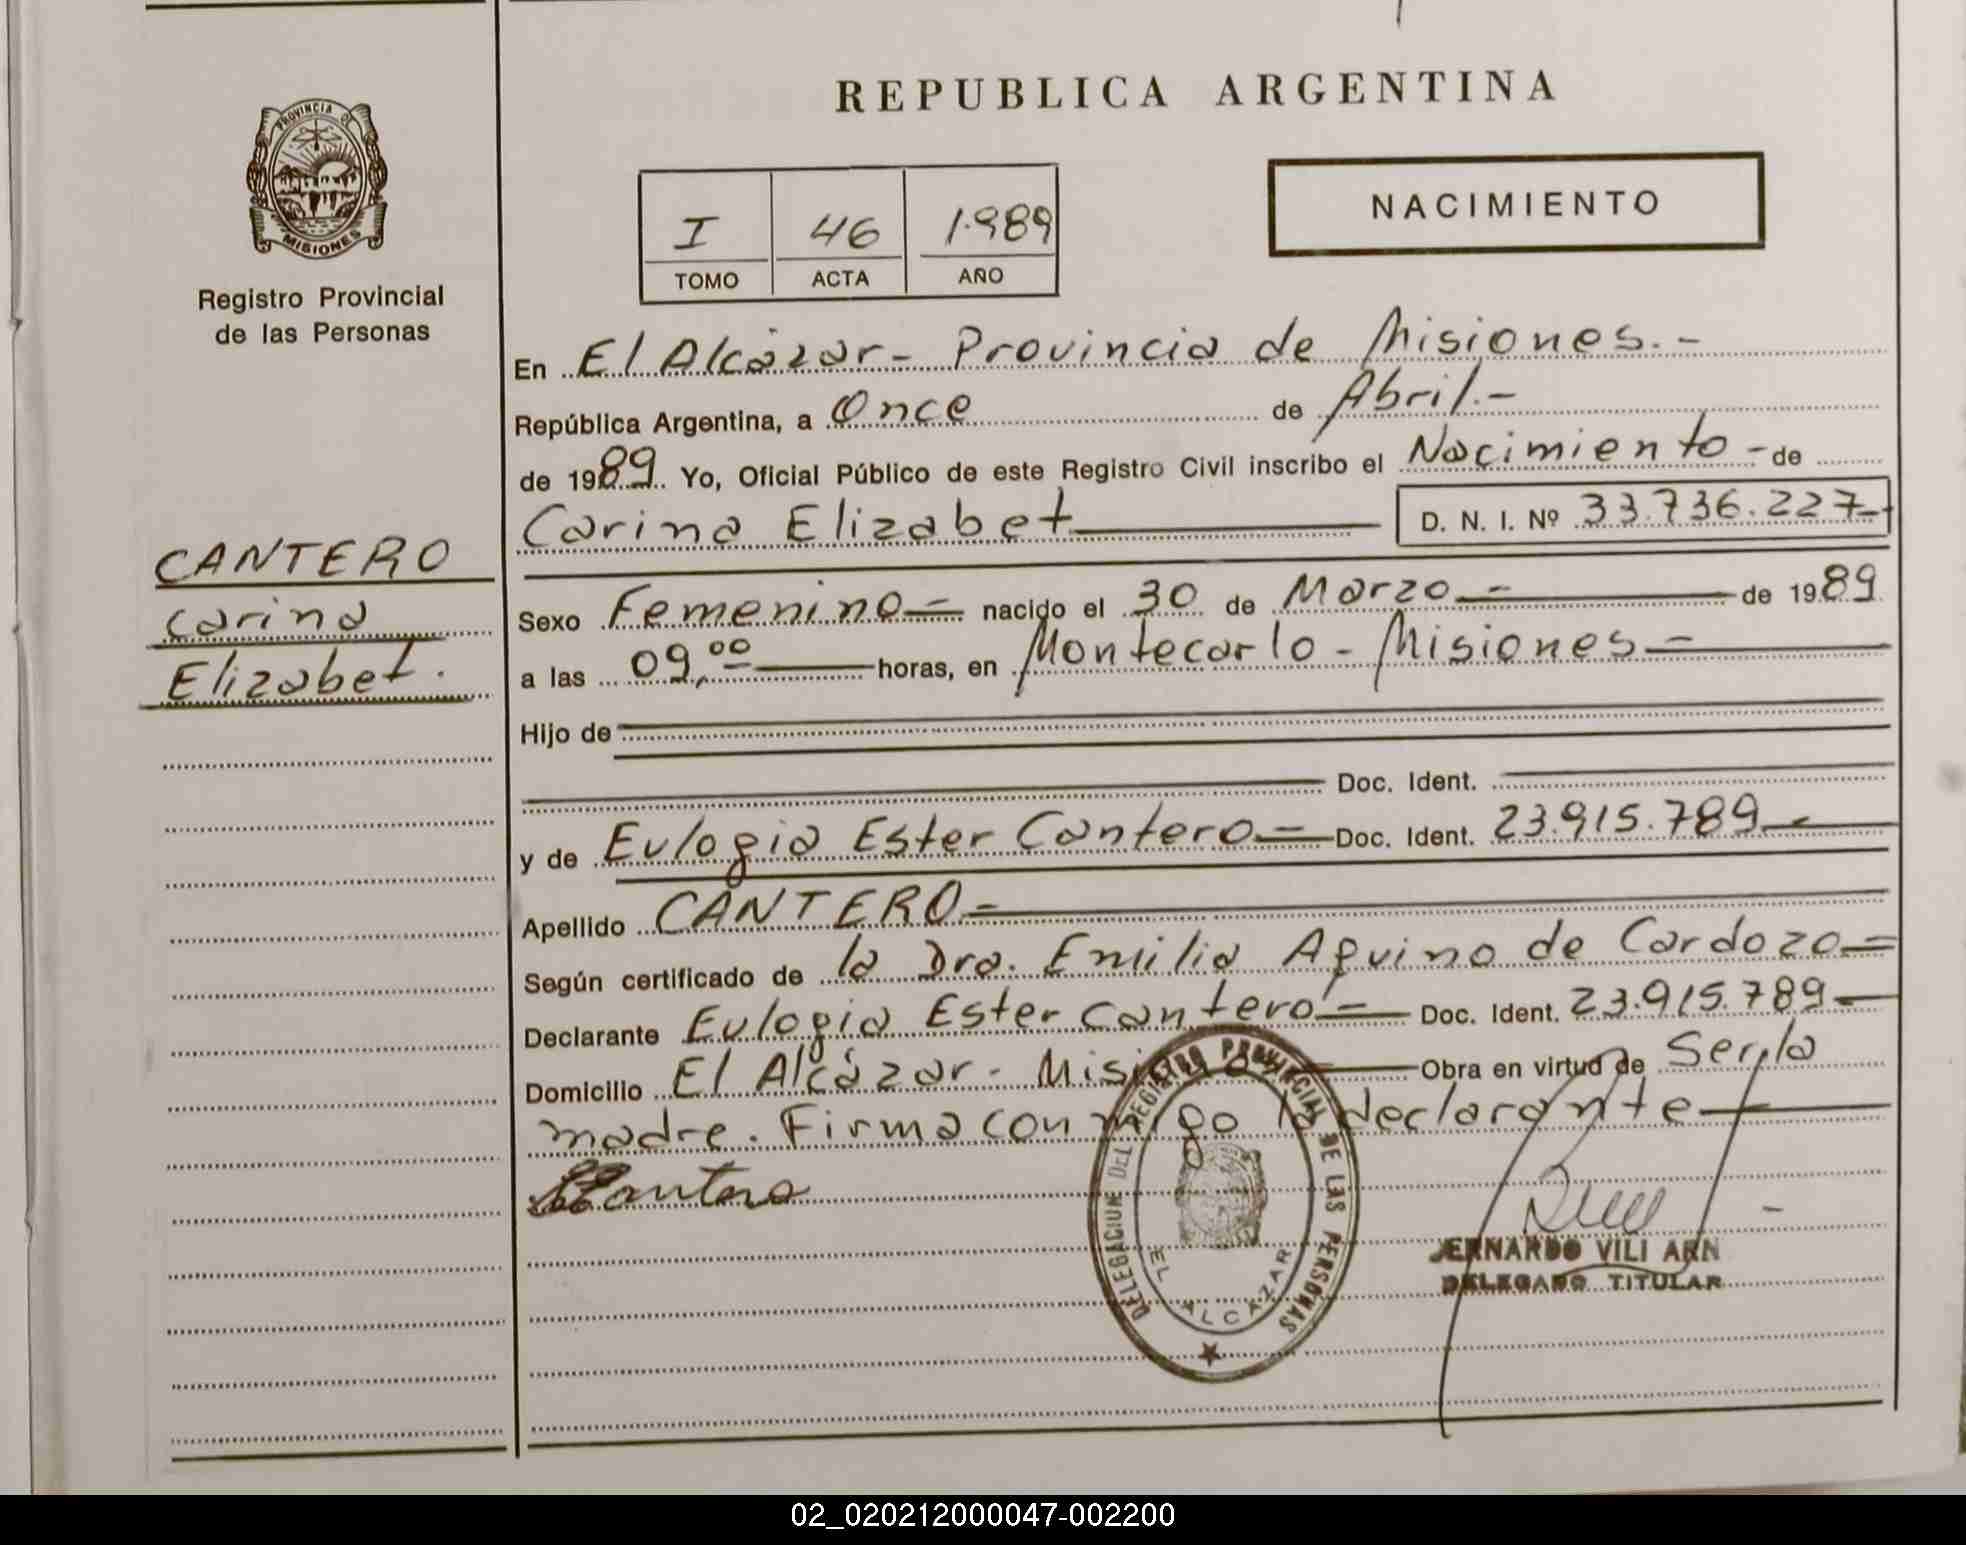 REPUBLICA ARGENTINA
PROVINCIA DE
MISIONES
Registro Provincial
de las Personas
NACIMIENTO
I 46 1.989
TOMO ACTA AÑO
En El Alcázar - Provincia de Misiones.-
República Argentina, a Once de Abril.-
de 1989 Yo, Oficial Público de este Registro Civil inscribo el Nacimiento - de
Carina Elizabet D. N. I. Nº 33.736.227-
CANTERO
Carina
Elizabet.
Sexo Femenino - nacido el 30 de Marzo - de 1989
a las 09,00 horas, en Montecarlo - Misiones -
Hijo de
Doc. Ident.
y de Eulogia Ester Cantero - Doc. Ident. 23.915.789 -
Apellido CANTERO -
Según certificado de la Dra. Emilia Aquino de Cardozo -
Declarante Eulogia Ester Cantero - Doc. Ident. 23.915.789 -
Domicilio El Alcázar - Misiones Obra en virtud de Ser la
madre. Firma conmigo la declarante
Cantero
DELEGACION DEL REGISTRO PROVINCIAL DE LAS PERSONAS
EL ALCAZAR
VILI ARN
DELEGADO TITULAR
02_020212000047-002200